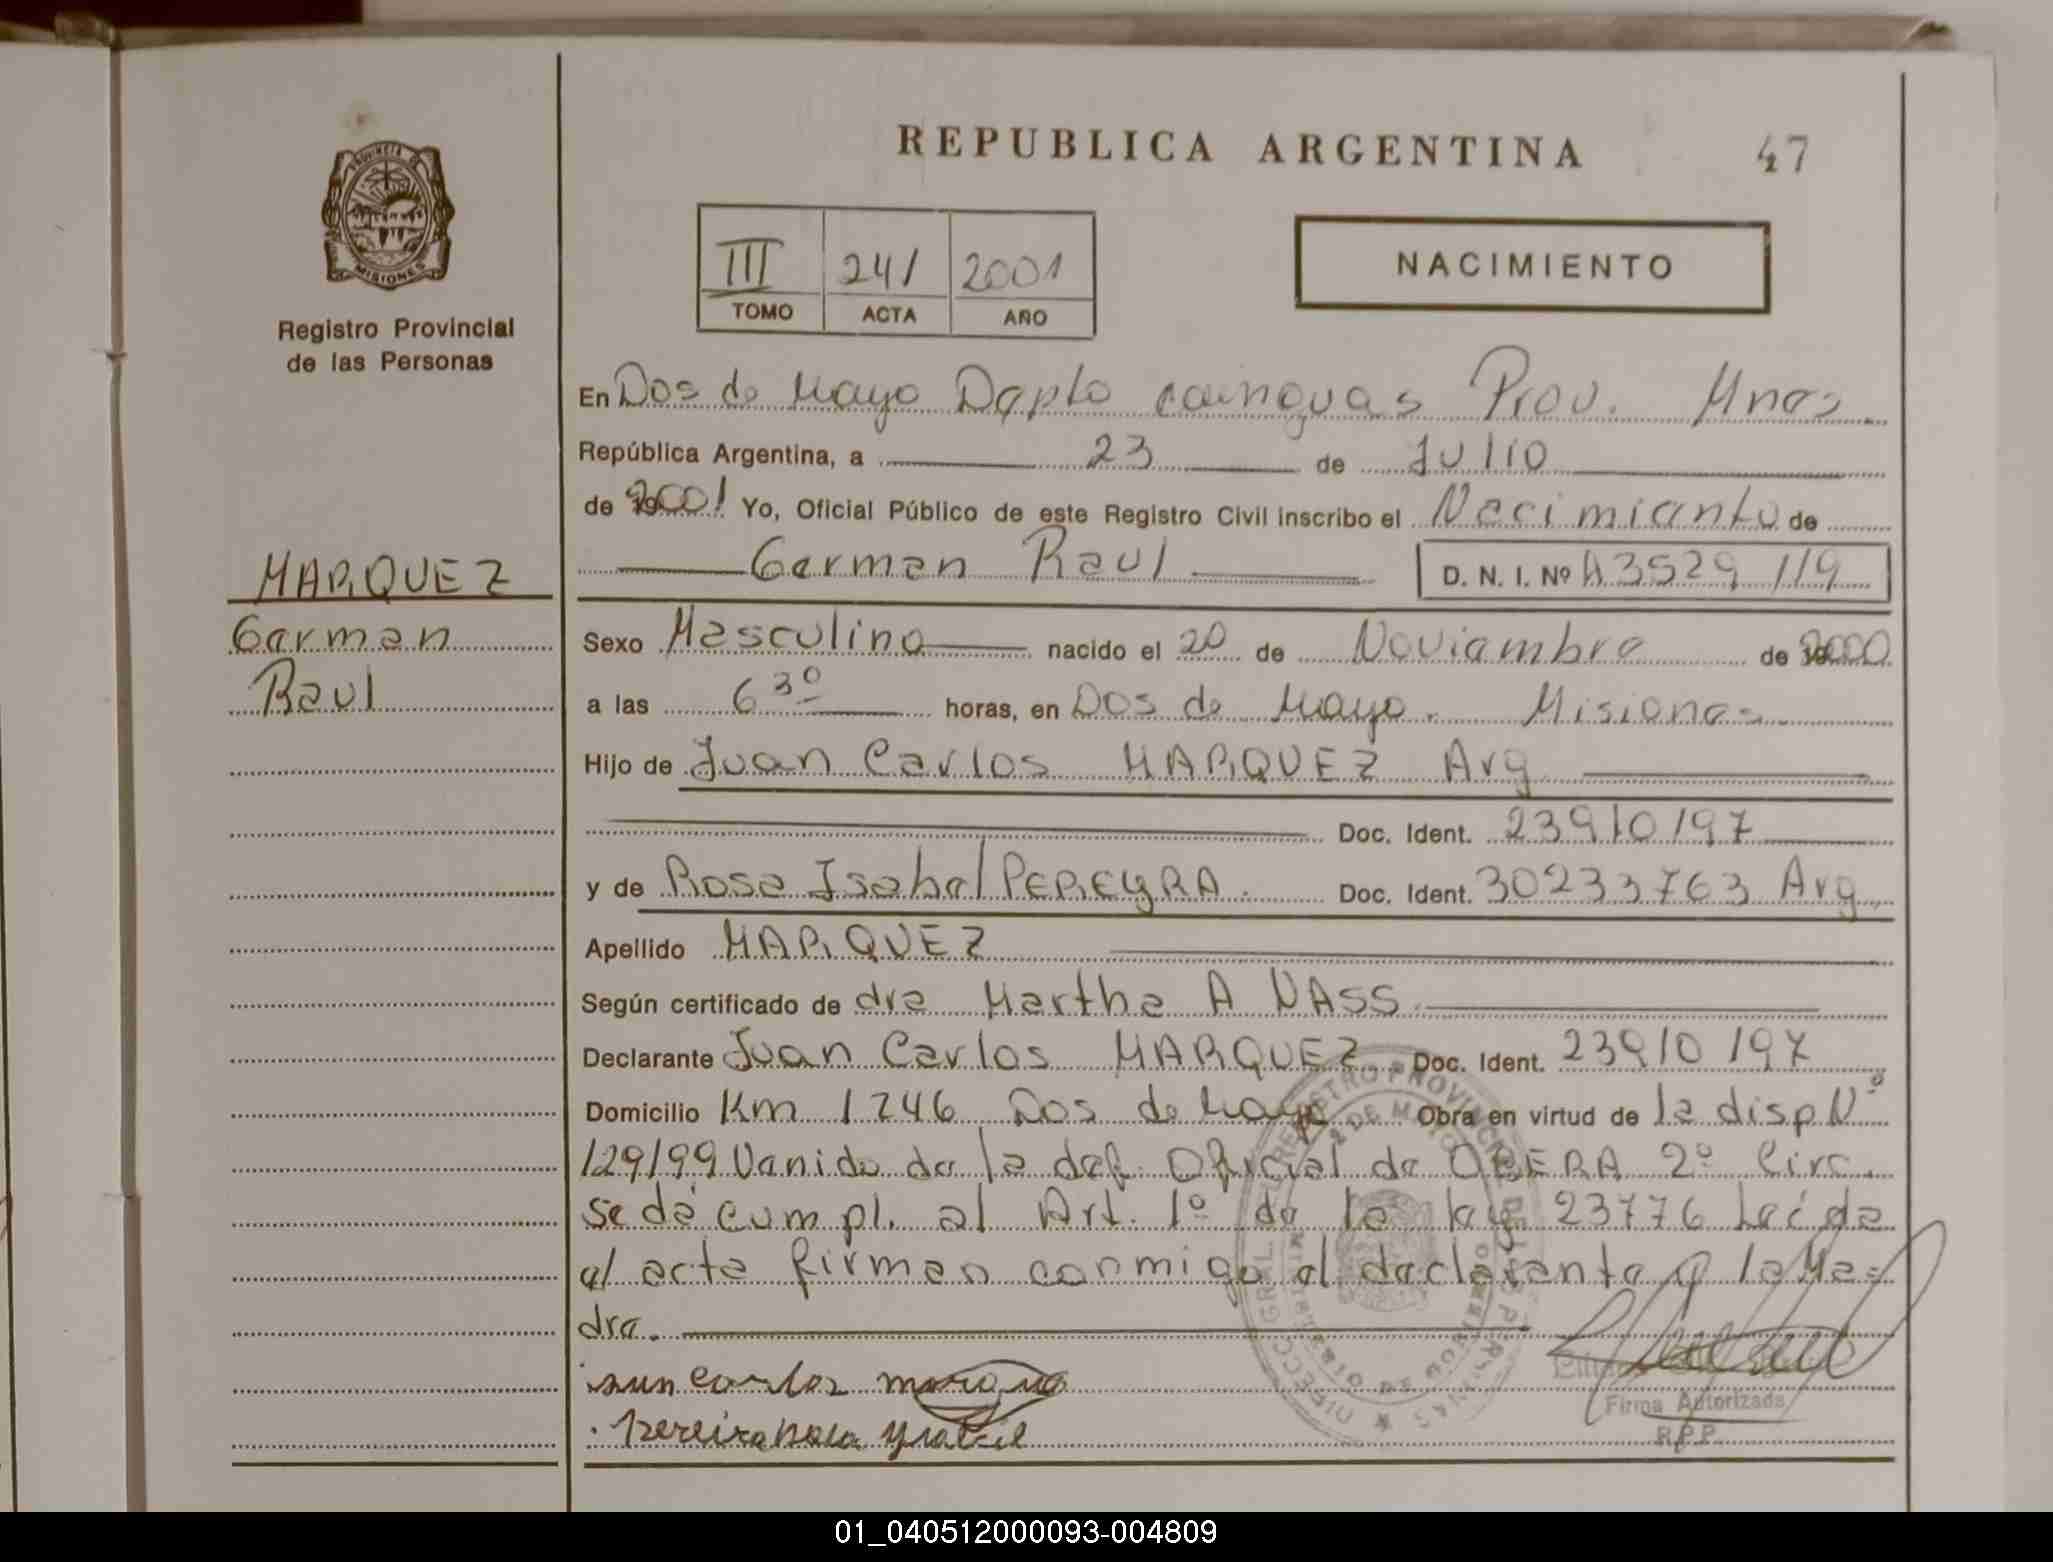 REPUBLICA ARGENTINA 47
PROVINCIA DE
MISIONES
Registro Provincial
de las Personas
III 241 2001
TOMO ACTA AÑO
NACIMIENTO
En Dos de Mayo Depto cainguas Prov. Mnes
República Argentina, a 23 de Julio
de 2001 Yo, Oficial Público de este Registro Civil inscribo el Nacimiento de
German Raul D. N. I. Nº 43529119
MARQUEZ
German
Raul
Sexo Masculino nacido el 20 de Noviembre de 2000
a las 6 30 horas, en Dos de Mayo. Misiones
Hijo de Juan Carlos MARQUEZ Arg
Doc. Ident. 23910197
y de Rosa Isabel PEREYRA. Doc. Ident. 30233763 Arg.
Apellido MARQUEZ
Según certificado de dra Martha A NASS
Declarante Juan Carlos MARQUEZ Doc. Ident. 23910197
Domicilio Km 1246 Dos de Mayo Obra en virtud de la disp Nº
129/99 Venido de la def. Oficial de OBERA 2º Circ.
se dá cumpl. al Art. 1º de la ley 23776 Leída
el acta firman conmigo el declarante y la Ma=
dre.
Juan Carlos
Pereira Rosa Ysabel
Firma Autorizada
R.P.P.
01_040512000093-004809